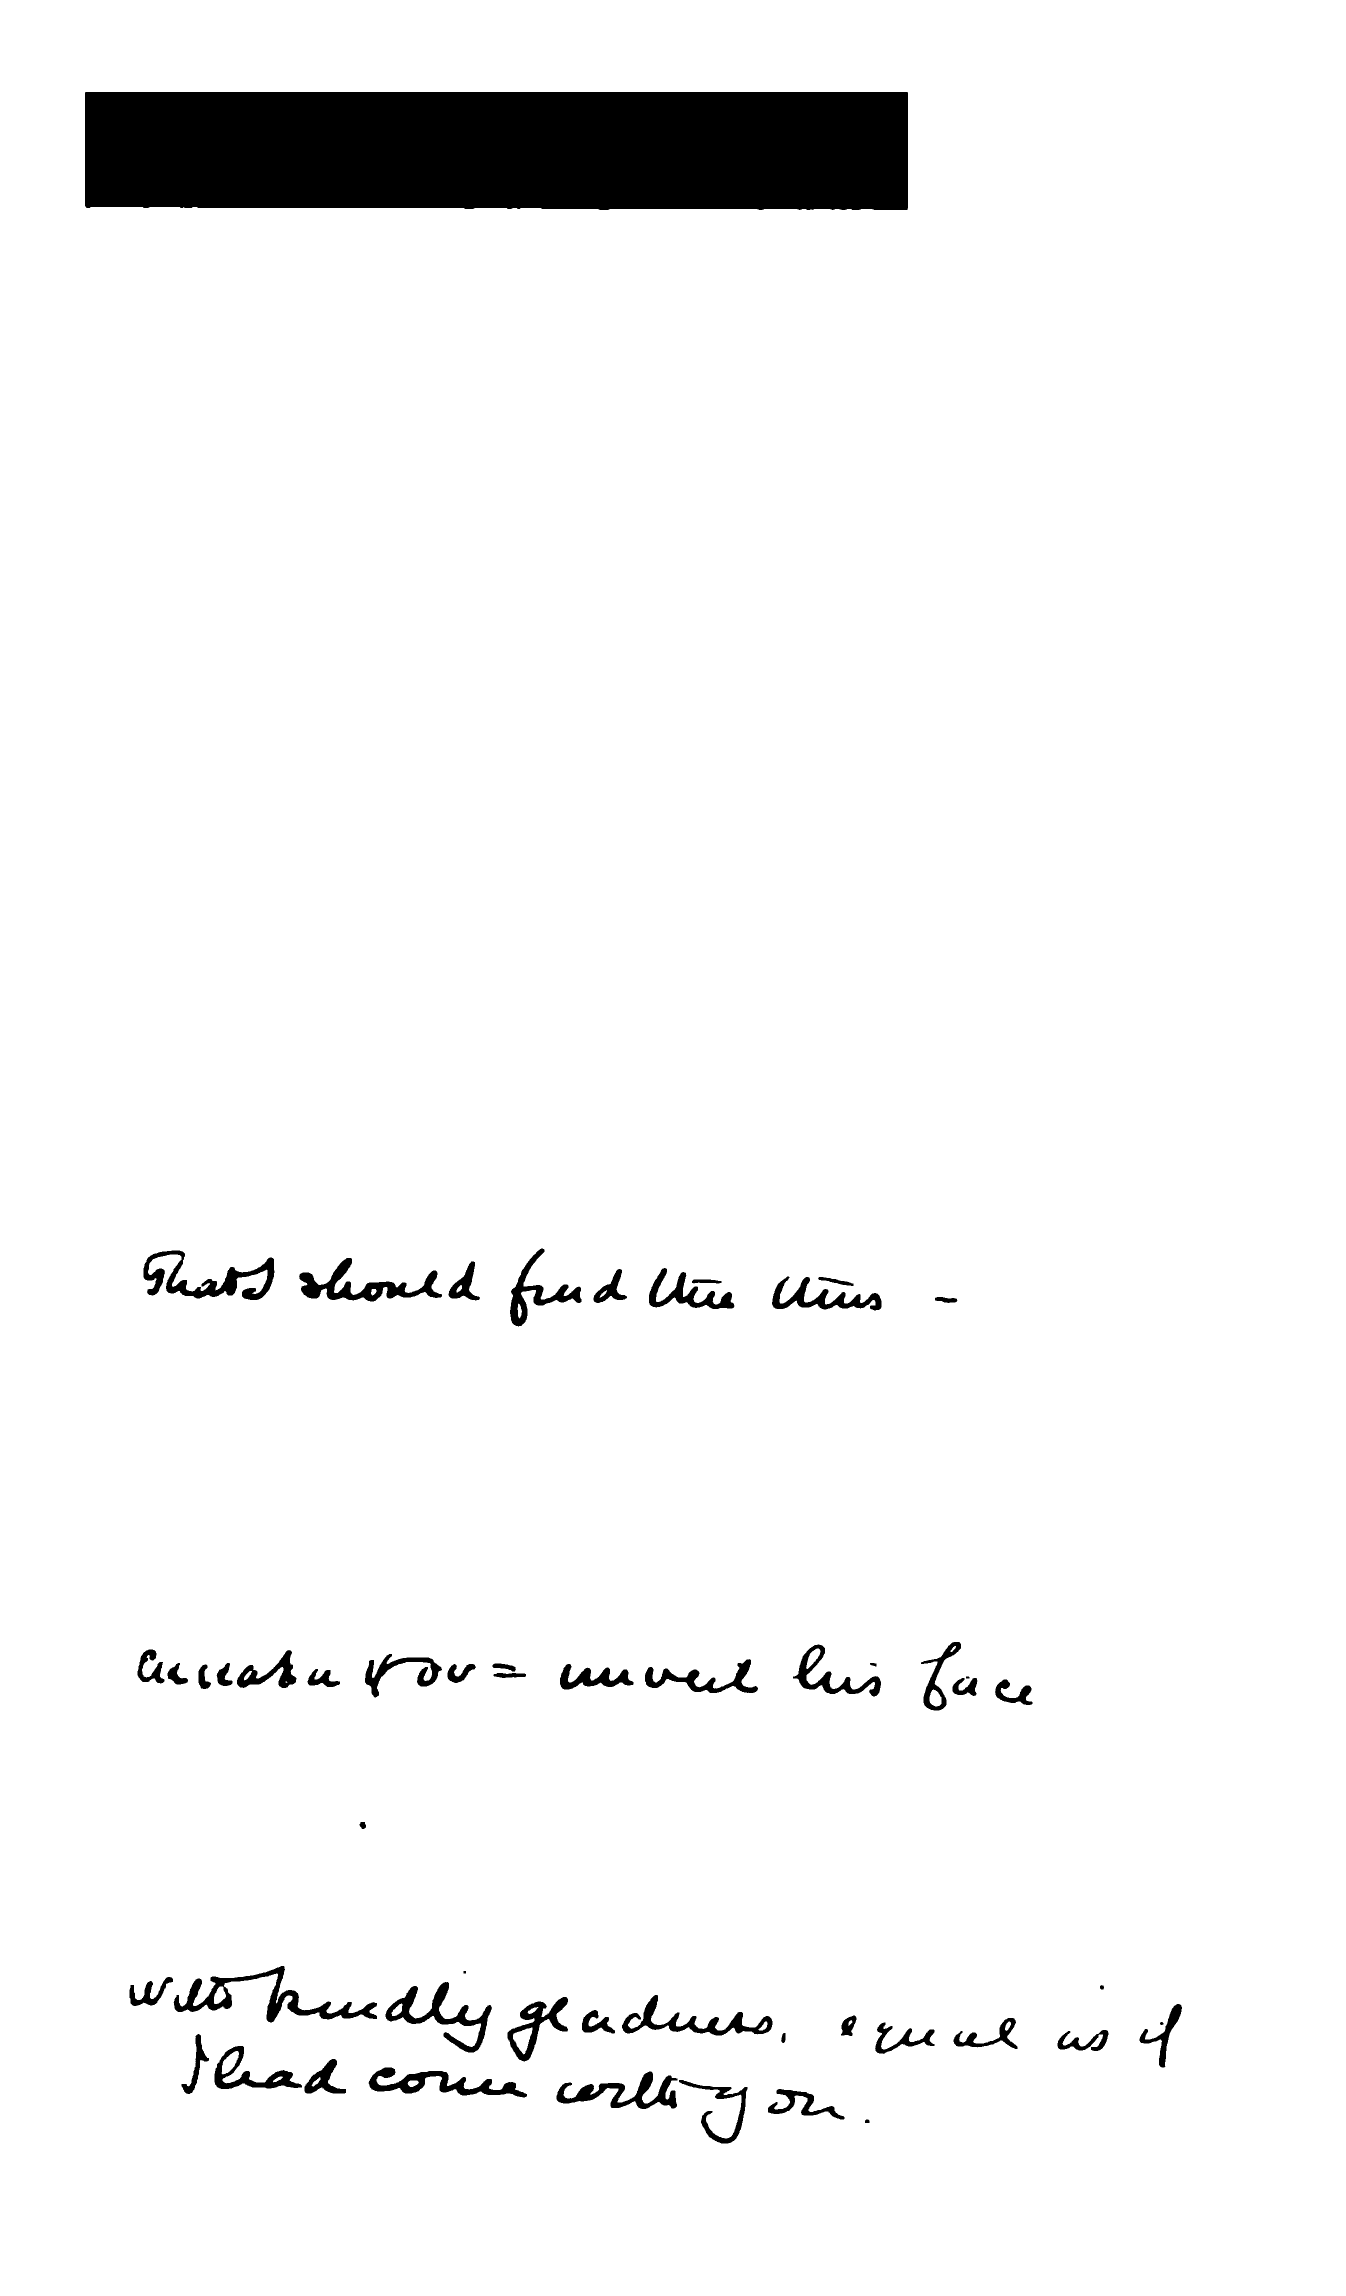 That I should find thee thus -
= unveil his face
with kindly gladness, equal as if
I had come with you.